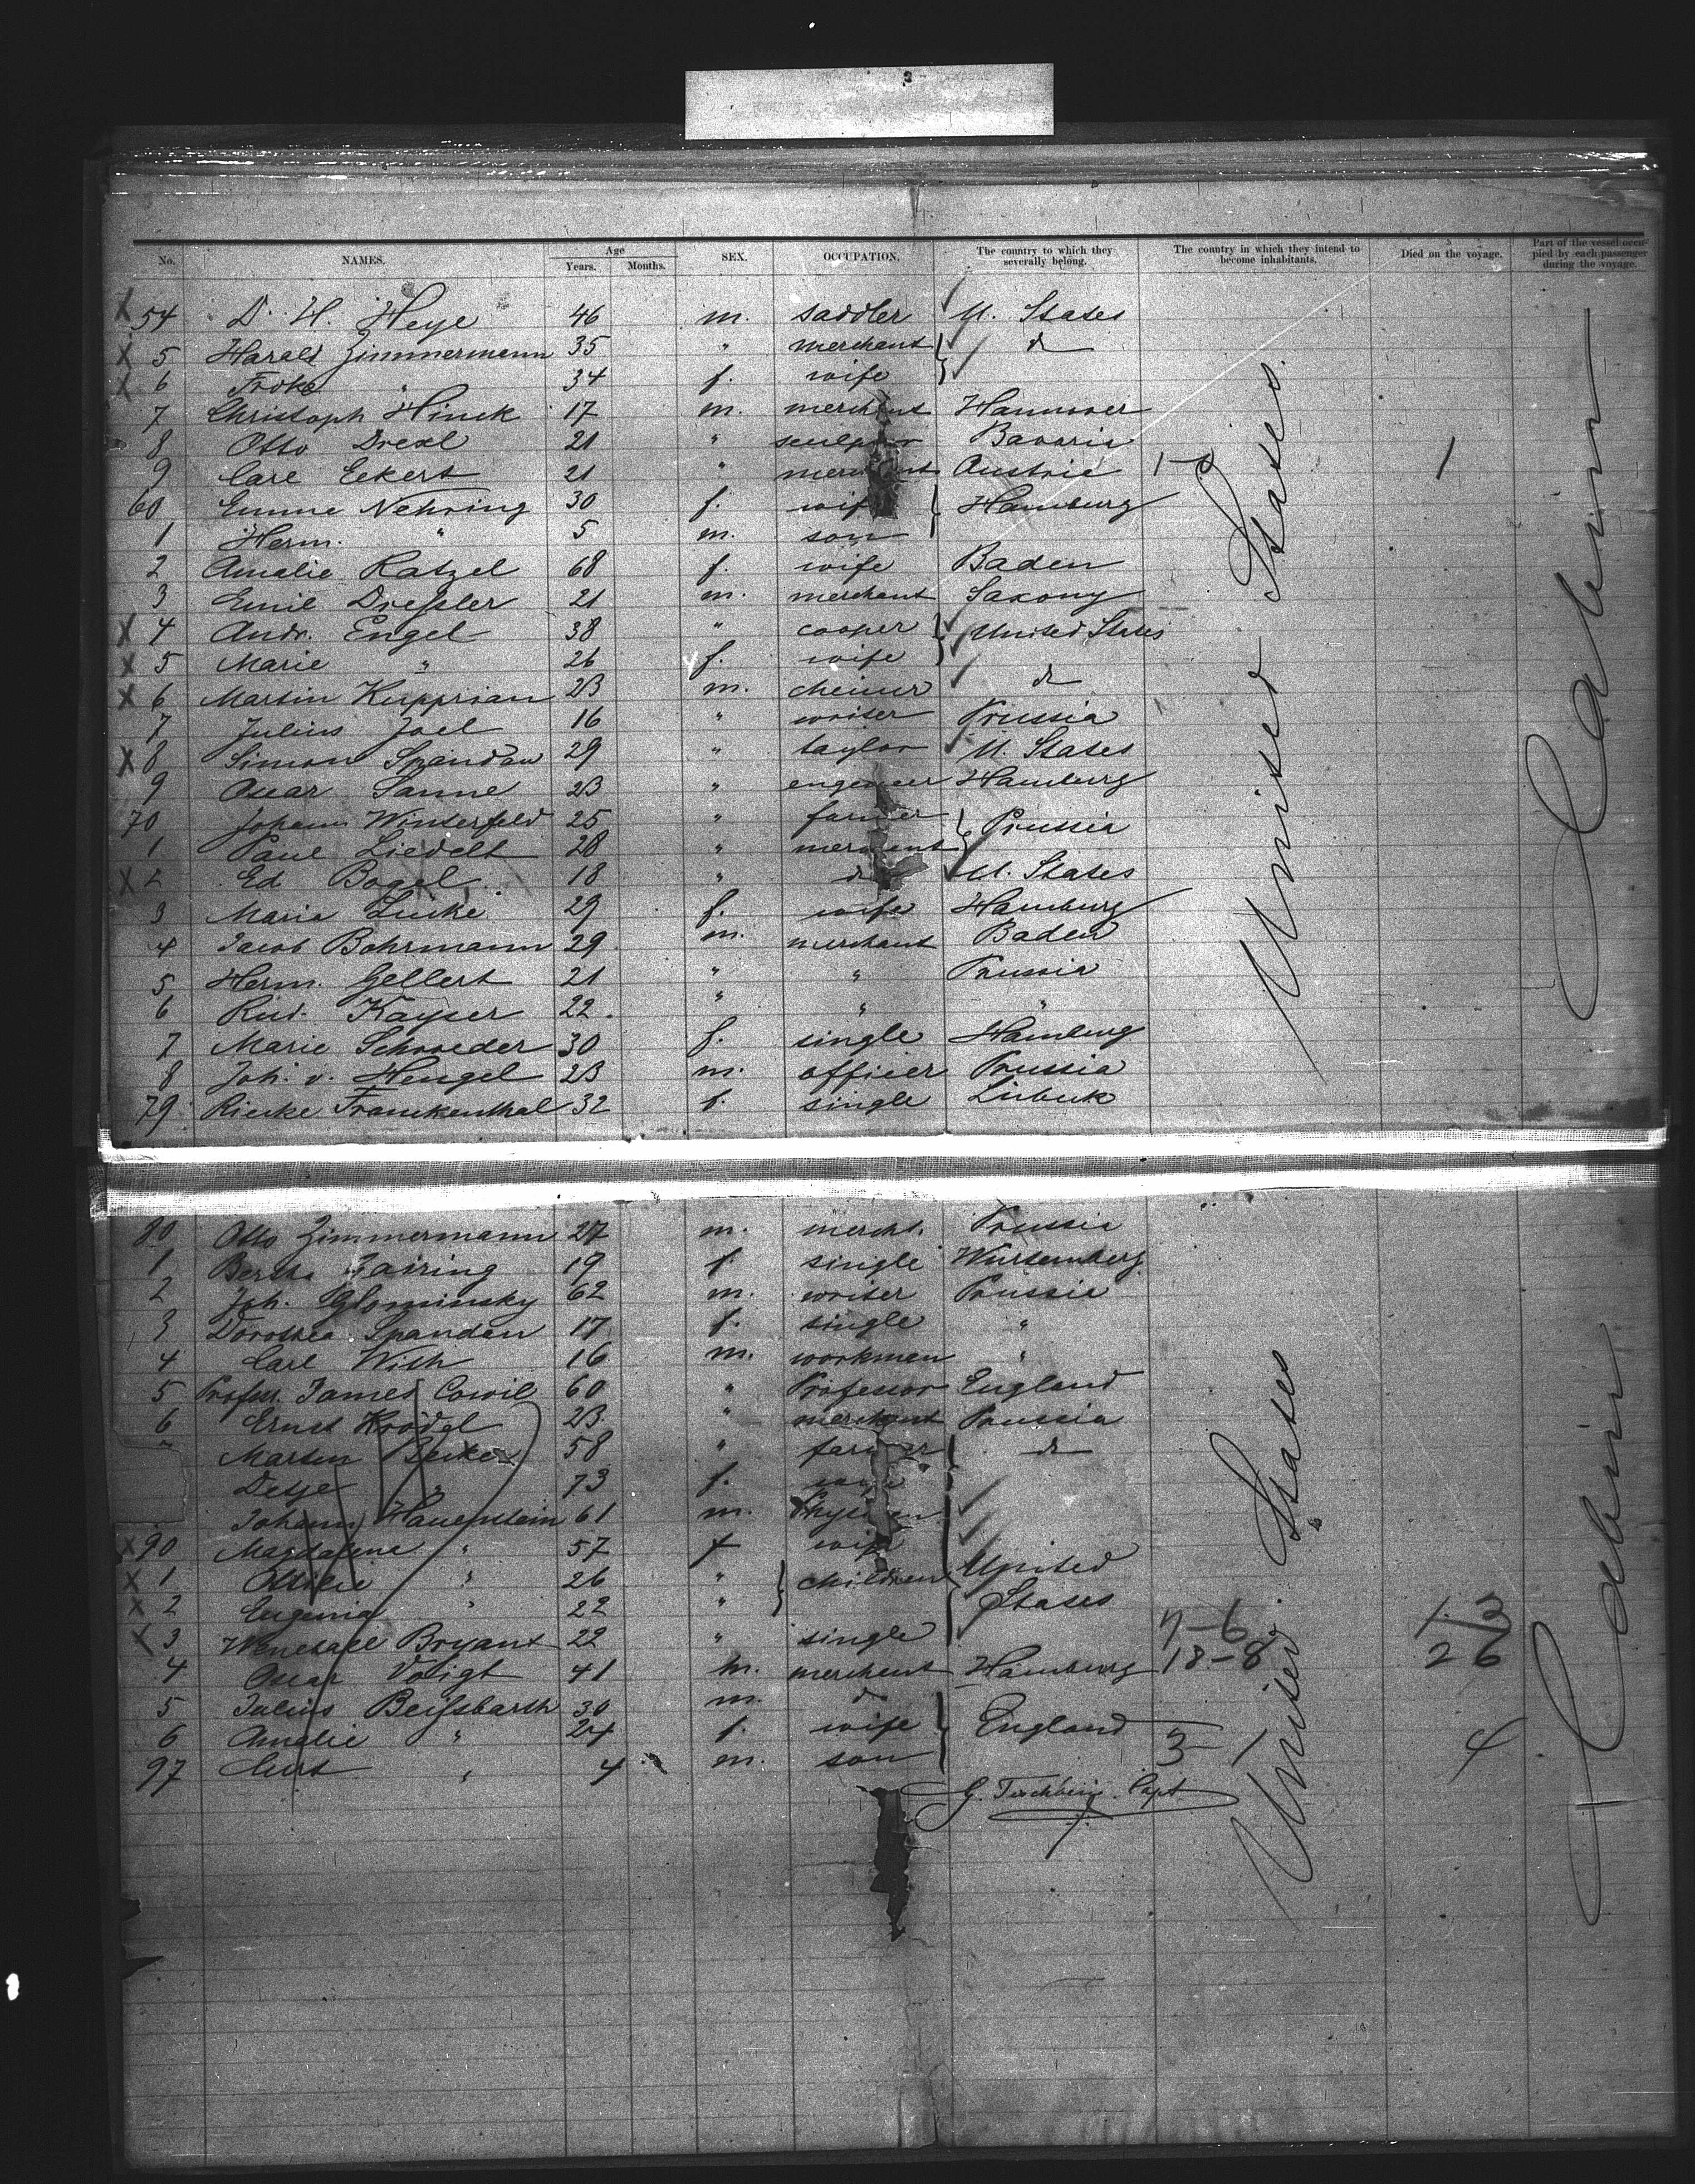 No. NAMES. Age Years. Months. SEX. OCCUPATION. The country to which they severally belong. The country in which they intend to become inhabitants. Died on the voyage. Part of the vessel occupied by each passenger during the voyage.
X 54 D. H. Heye 46 m. saddler U. States
X 5 Harald Zimmermann 35 " merchant do
X 6 " 34 f. wife
7 Christoph Hinck 17 m. merchant Hannover
8 Otto Drexl 21 " sculptor Bavaria
9 Carl Eckert 21 " merchant Austria 1
60 Emma Nehring 30 f. wife Hamburg
1 Herm. " 5 m. son
2 Amalie Ratzel 68 f. wife Baden
3 Emil Dressler 21 m. merchant Saxony
X 4 Andr. Engel 38 " cooper United States
X 5 Marie " 26 f. wife
X 6 Martin Kupprian 23 m. do
7 Julius Joel 16 " writer Prussia
X 8 Simon Spandau 29 " taylor U. States
9 Oscar Sanne 23 " engeneer Hamburg
70 Johann Winterfeld 25 " farmer Prussia
1 Paul Liedelt 28 " merchant
X 2 Ed Bogel 18 " do U. States
3 Maria Lucke 29 f. wife Hamburg
4 Jacob Bohrmann 29 m. merchant Baden
5 Herm. Gellert 21 " " Prussia
6 Rud. Kayser 22 " " "
7 Marie Schroeder 30 f. single Hamburg
8 Joh. v. Hengel 23 m. officer Prussia
79 Rieke Franckenthal 32 f. single Lübeck
United States
Cabin
80 Otto Zimmermann 27 m. mercht. Prussia
1 Bertha Fairing 19 f. single Wurtemberg
2 Joh. Glominsky 62 m. writer Prussia
3 Dorothea Spandau 17 f. single "
4 Carl Wish 16 m. workman "
5 Profess. James Cowil 60 " Professor England
6 Ernst Krödel 23 " merchant Prussia
Marten Becker 58 " farmer do
Detje " 73 f. wife
Johann Hauenstein 61 m. Physician
X 90 Magdalena " 57 f wife United States
X 1 Ottilie " 26 " children
X 2 Eugenia " 22 "
X 3 Bryant 22 " single 7-6 1 3
4 Oscar Voigt 41 m. merchant Hamburg 18-8 2 6
5 Julius Beissbarth 30 m. do England
6 Amalie " 24 f. wife 3 1 4
97 Curt " 4 m. son
G. Tischbein. Capt
United States
Cabin